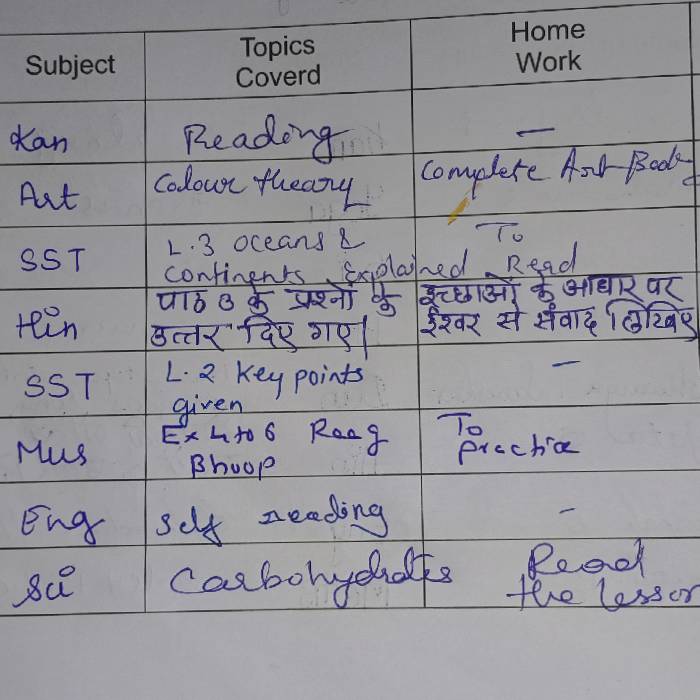 Subject Topics Coverd Home Work
Kan Reading —
Art Colour theary Complete Art Book
SST L.3 oceans & To
continents Explained Read
Hin पाठ 3 के प्रश्नों के इच्छाओं के आधार पर
उत्तर दिए गए। ईश्वर से संवाद लिखिए
SST L.2 Key points —
given
Mus Ex 4 to 6 Raag To
Bhoop practice
Eng Self reading -
Sci Carbohydrates Read
the lesson